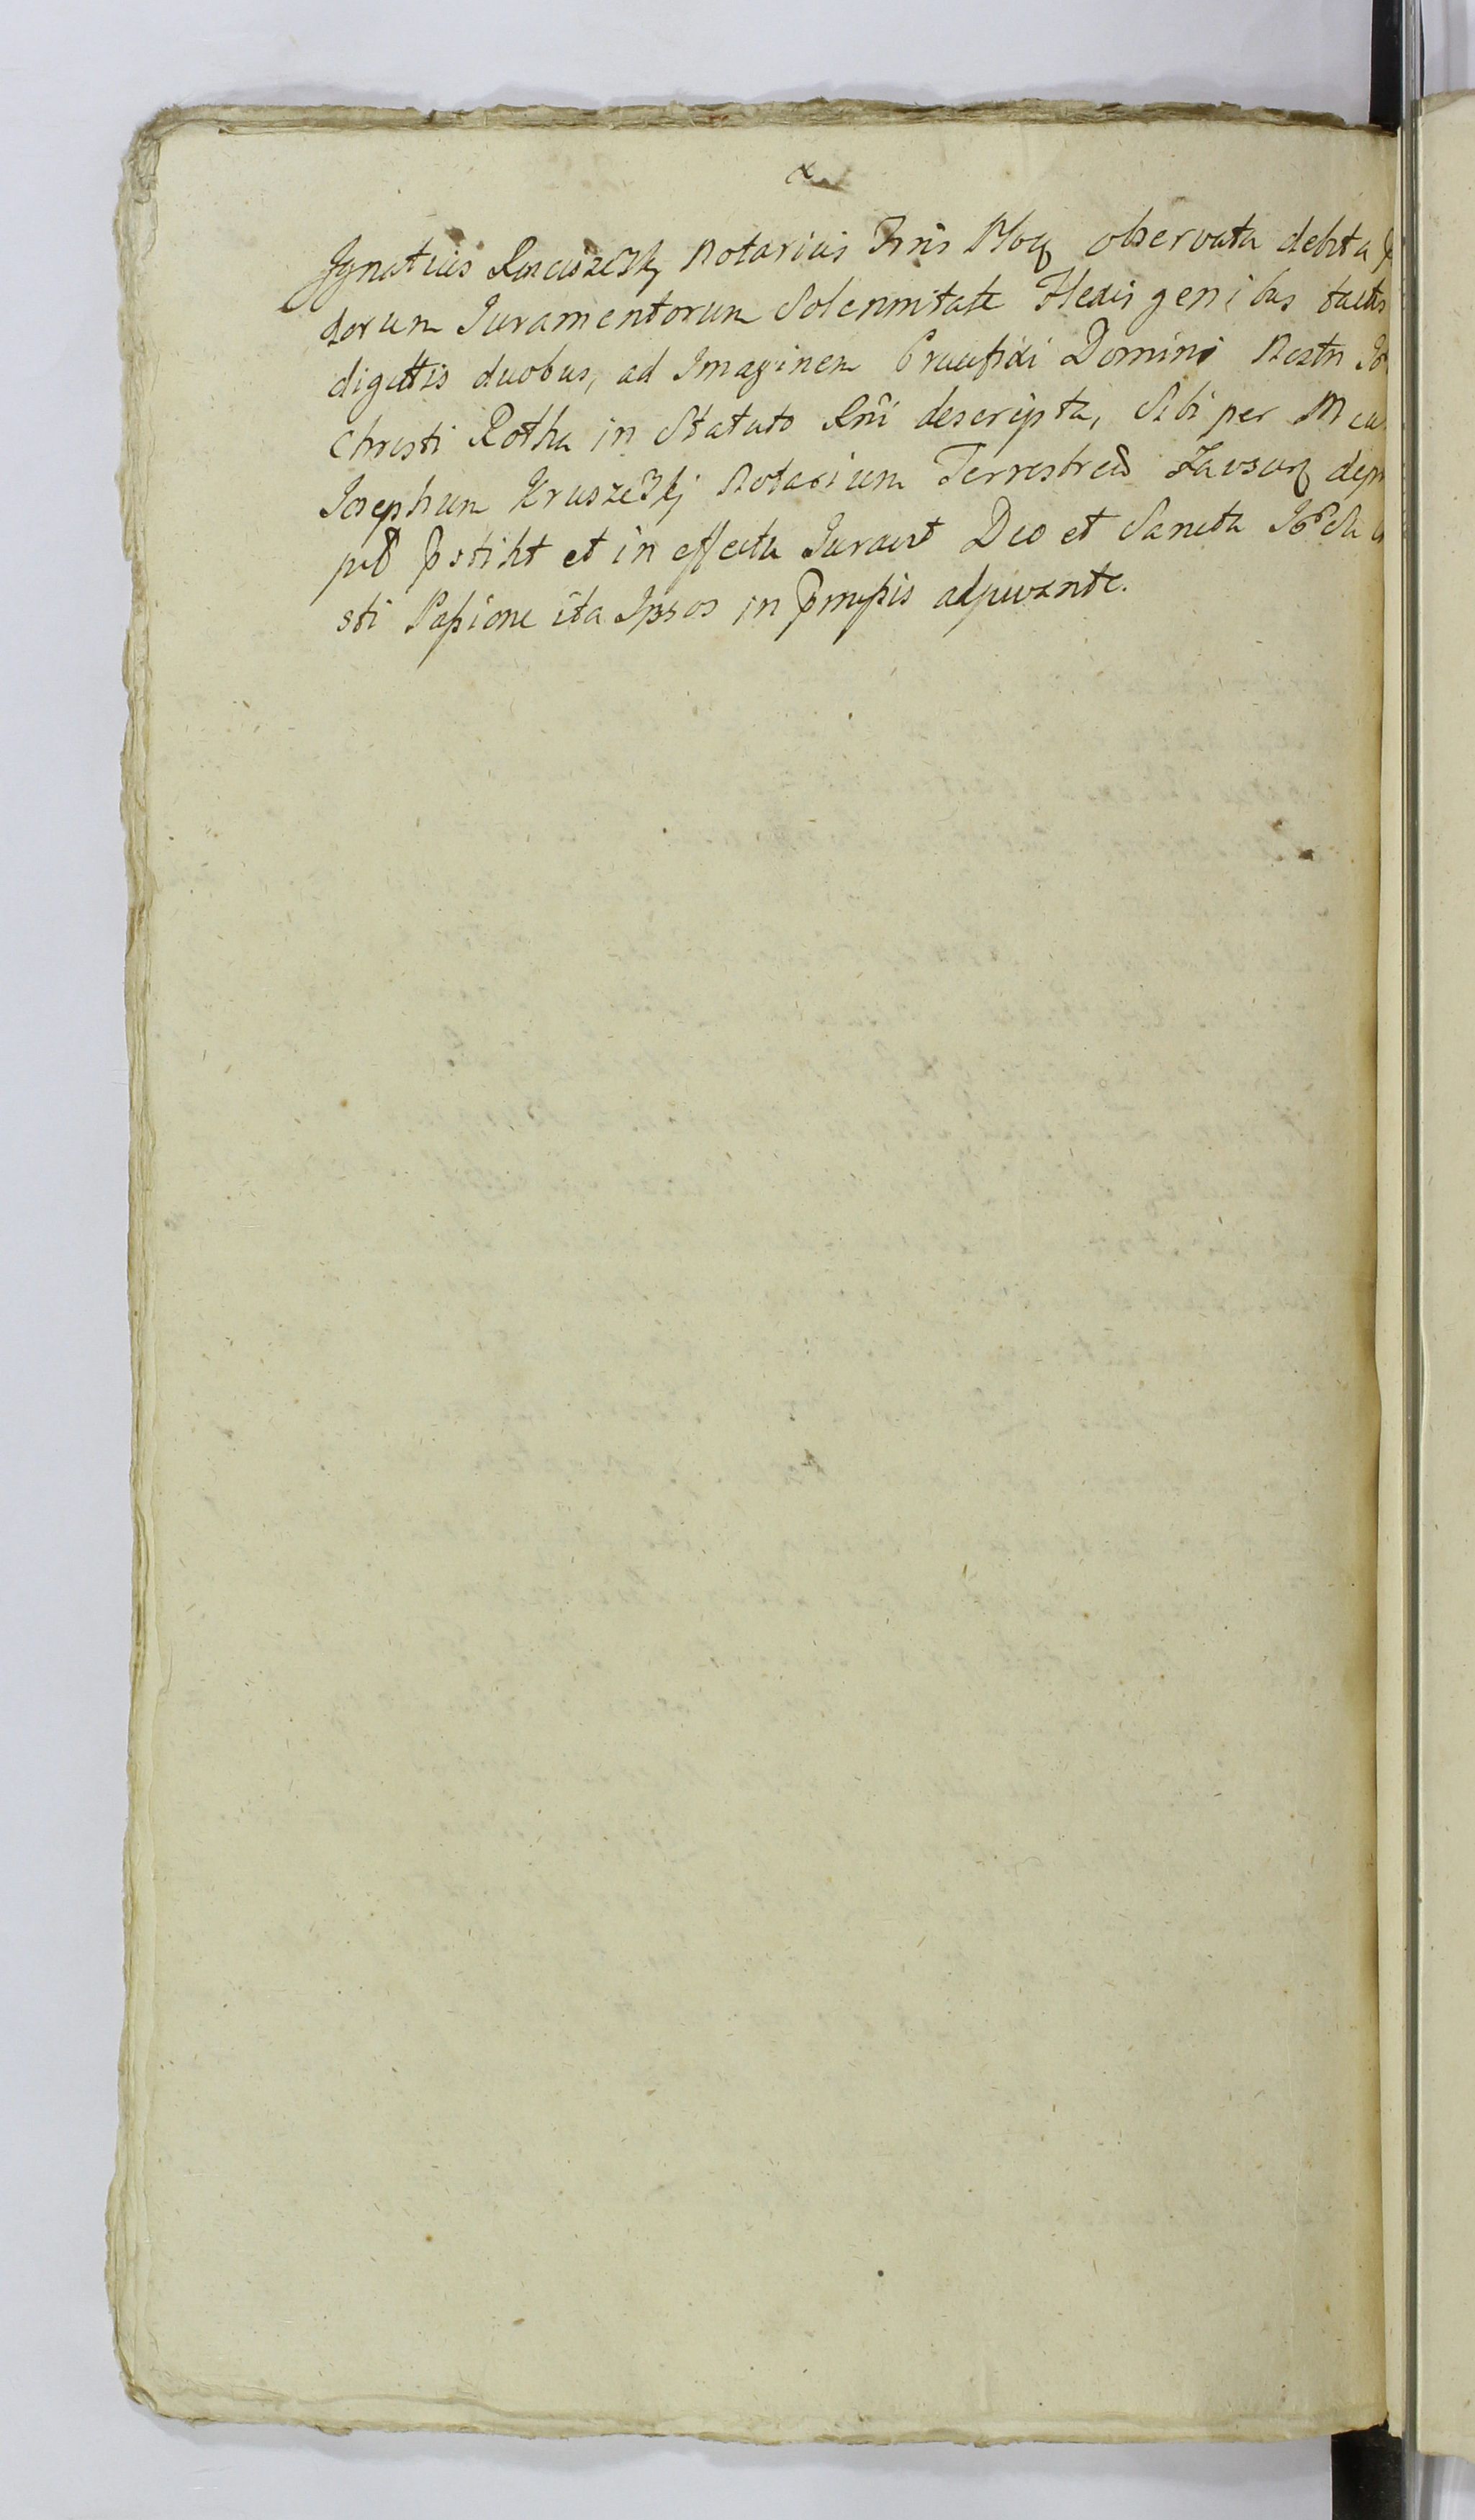 Ignatius Notarius observata debita
dorum Iuramentorum Solennitate Flexis genibus tactis
digittis duobus, ad Imaginem Crucifixi Domini Nostri
Christi Rotha in Statuto Rñi descripta, Sibi per
Iosephum Kruszeski Notarium Terrestrem
et in effectu Iuravit Deo et Sancta
sti Passione ita Ipsos in adjuvante.